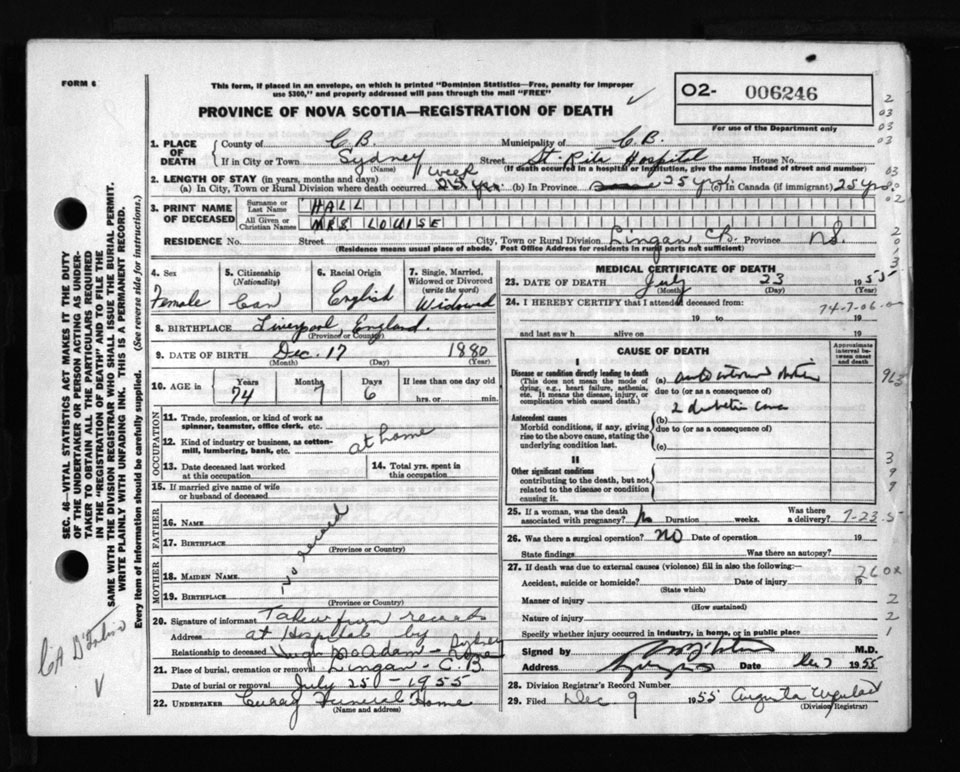 FORM 6
This form, if placed in an envelope, on which is printed "Dominion Statistics—Free, penalty for improper
use $300," and properly addressed will pass through the mail "FREE"
PROVINCE OF NOVA SCOTIA—REGISTRATION OF DEATH
O2- 006246
For use of the Department only
SEC. 46—VITAL STATISTICS ACT MAKES IT THE DUTY
OF THE UNDERTAKER OR PERSON ACTING AS UNDER-
TAKER TO OBTAIN ALL THE PARTICULARS REQUIRED
IN THE "REGISTRATION OF DEATH" AND TO FILE THE
SAME WITH THE DIVISION REGISTRAR WHO SHALL ISSUE THE BURIAL PERMIT.
WRITE PLAINLY WITH UNFADING INK. THIS IS A PERMANENT RECORD.
Every item of information should be carefully supplied. (See reverse side for instructions.)
1. PLACE OF DEATH County of C.B. Municipality of C.B.
If in City or Town Sydney Street St. Rita Hospital House No.
(Name) (If death occurred in a hospital or institution, give the name instead of street and number)
2. LENGTH OF STAY (in years, months and days) 1 week
(a) In City, Town or Rural Division where death occurred 25 yrs. (b) In Province 25 yrs. (c) In Canada (if immigrant) 25 yrs.
3. PRINT NAME OF DECEASED Surname or Last Name HALL
All Given or Christian Names MRS LOUISE
RESIDENCE No. Street City, Town or Rural Division Lingan C.B. Province N.S.
(Residence means usual place of abode. Post Office Address for residents in rural parts not sufficient)
4. Sex Female
5. Citizenship (Nationality) Can
6. Racial Origin English
7. Single, Married, Widowed or Divorced (write the word) Widowed
8. BIRTHPLACE Liverpool, England.
(Province or Country)
9. DATE OF BIRTH Dec. 17 1880
(Month) (Day) (Year)
10. AGE in Years 74 Months 7 Days 6 If less than one day old
hrs. or min.
OCCUPATION
11. Trade, profession, or kind of work as
spinner, teamster, office clerk, etc.
12. Kind of industry or business, as cotton-
mill, lumbering, bank, etc. at home
13. Date deceased last worked
at this occupation
14. Total yrs. spent in
this occupation
15. If married give name of wife
or husband of deceased
FATHER
16. NAME
17. BIRTHPLACE
(Province or Country)
No record
MOTHER
18. MAIDEN NAME
19. BIRTHPLACE
(Province or Country)
20. Signature of informant Taken from records
Address at Hospital by
Relationship to deceased Hugh McAdam - Sydney
21. Place of burial, cremation or removal Lingan - C.B.
Date of burial or removal July 25 - 1955
22. UNDERTAKER Curry Funeral Home
(Name and address)
MEDICAL CERTIFICATE OF DEATH
23. DATE OF DEATH July 23 1955
(Month) (Day) (Year)
24. I HEREBY CERTIFY that I attended deceased from:
19 to 19
and last saw h alive on 19
CAUSE OF DEATH
Approximate interval between onset and death
I
Disease or condition directly leading to death
(This does not mean the mode of
dying, e.g., heart failure, asthenia,
etc. It means the disease, injury, or
complication which caused death.)
(a)
due to (or as a consequence of)
Antecedent causes
Morbid conditions, if any, giving
rise to the above cause, stating the
underlying condition last.
2 diabetic coma
(b)
due to (or as a consequence of)
(c)
II
Other significant conditions
contributing to the death, but not
related to the disease or condition
causing it.
25. If a woman, was the death
associated with pregnancy? No Duration weeks. Was there a delivery?
7-23-5
26. Was there a surgical operation? NO Date of operation 19
State findings Was there an autopsy?
27. If death was due to external causes (violence) fill in also the following:—
Accident, suicide or homicide? Date of injury 19
(State which)
Manner of injury
(How sustained)
Nature of injury
Specify whether injury occurred in industry, in home, or in public place
Signed by M.D.
Address Date Dec 7 1955
28. Division Registrar's Record Number
29. Filed Dec 9 1955
(Division Registrar)